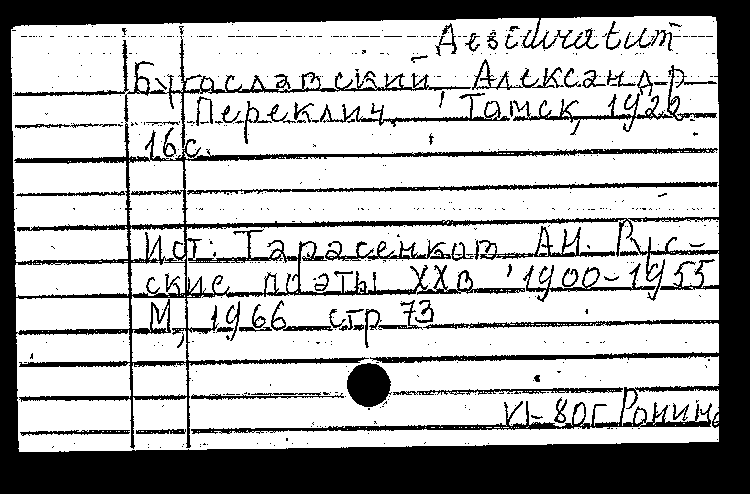 Desideratum
Бугославский Александр
Переклич. Томск, 1922.
16с.
Ист: Тарасенков А.Н. Рус-
ские поэты XXв 1900-1955
М, 1966 стр 73
VI-80г Ронина